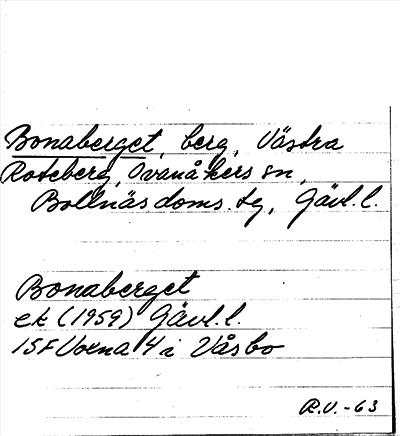 Bonaberget, berg, Västra
Roteberg, Ovanåkers sn,
Bollnäs doms. tg, Gävl. l.
Bonaberget
ek (1959) Gävl. l.
15F Voxna 4 i Våsbo
R.V. -63